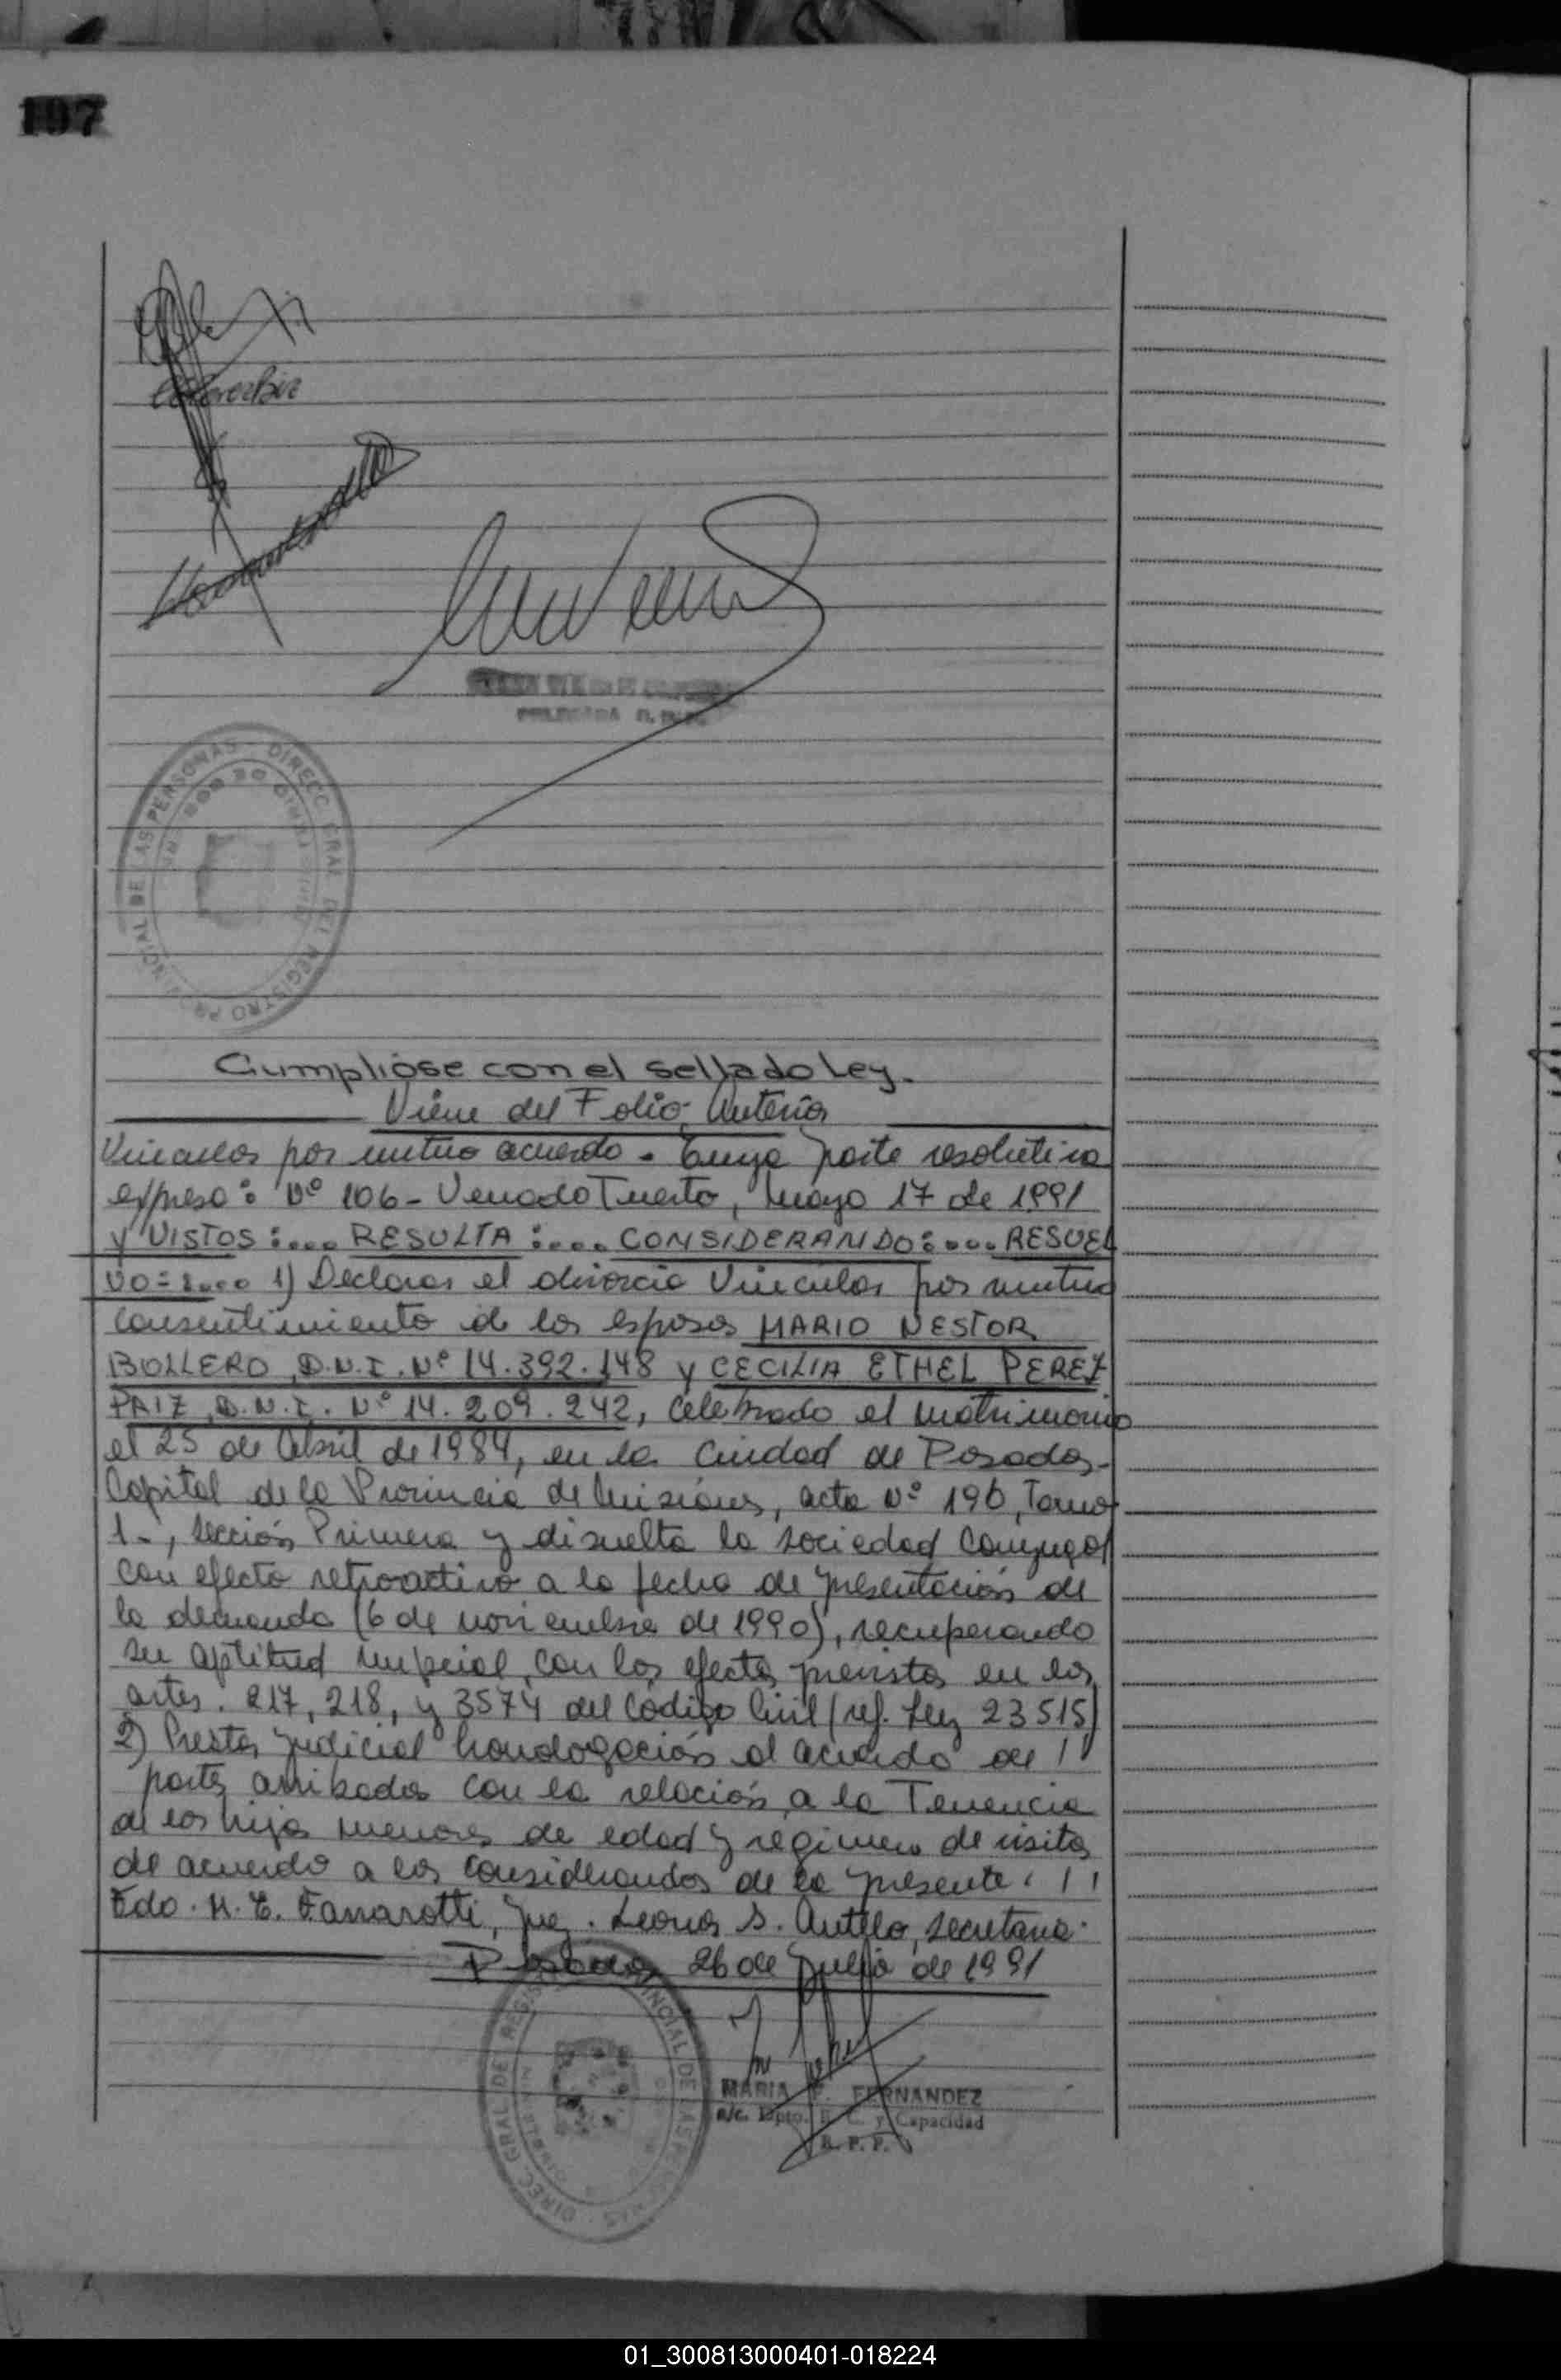 197
DELEGADA
DIRECC. GRAL. DEL REGISTRO PROVINCIAL DE LAS PERSONAS
Cumplióse con el sellado Ley.
Viene del Folio Anterior
Vincular por mutuo acuerdo. Cuya parte resolutiva
expresa: Nº 106 - Venado Tuerto, Mayo 17 de 1991
Y VISTOS:.... RESULTA:.... CONSIDERANDO:.... RESUEL
VO:.... 1) Declarar el divorcio Vincular por mutuo
consentimiento de los esposos MARIO NESTOR
BOLLERO, D.N.I. Nº 14.392.148 y CECILIA ETHEL PEREZ
PAIZ, D.N.I. Nº 14.209.242, celebrado el matrimonio
el 25 de Abril de 1984, en la Ciudad de Posadas-
Capital de la Provincia de Misiones, acta Nº 196, Tomo
1-, sección Primera y disuelta la sociedad conyugal
con efecto retroactivo a la fecha de presentación de
la demanda (6 de noviembre de 1990), recuperando
su aptitud nupcial, con los efectos previstos en los
artes. 217, 218, y 3574 del Código Civil (ref. Ley 23515)
2) Prestar judicial homologación al acuerdo de //
partes arribados con la relación a la Tenencia
de los hijos menores de edad y régimen de visitas
de acuerdo a los considerandos de la presente. //
Fdo. H. E. Fanarotti, Juez. Leonor S. Antelo, secretaria.
Posadas 26 de Julio de 1991
DIREC. GRAL. DE REGISTRO PROVINCIAL DE LAS PERSONAS
MARIA F. FERNANDEZ
a/c. Dpto. E. C. y Capacidad
R. P. P.
01_300813000401-018224